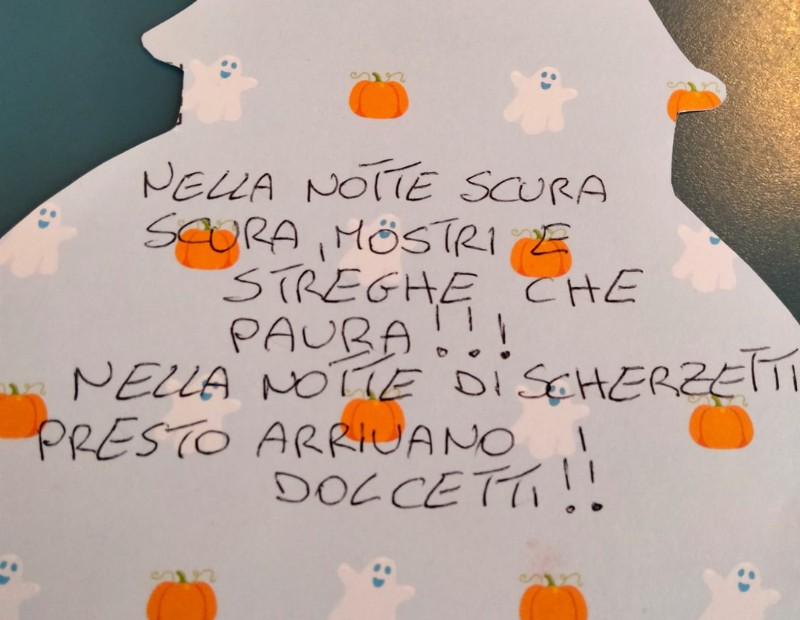 NELLA NOTTE SCURA
SCURA, MOSTRI E
STREGHE CHE
PAURA!!!
NELLA NOTTE DI SCHERZETTI
PRESTO ARRIVANO
DOLCETTI!!!